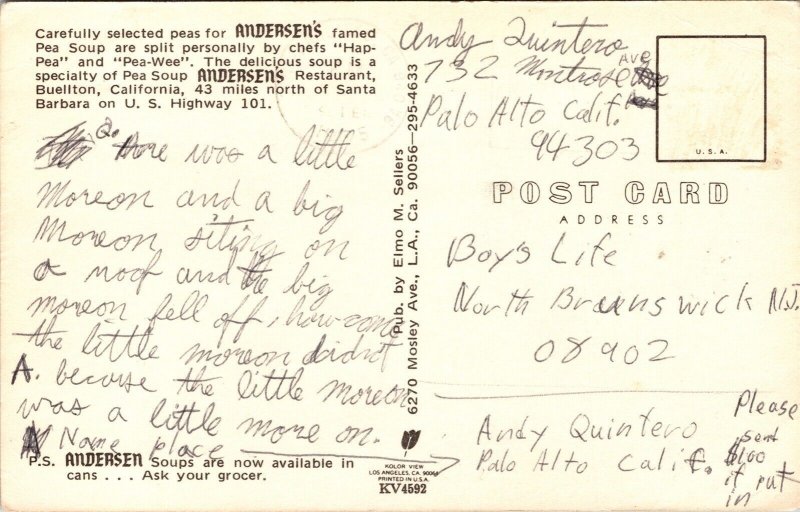 Carefully selected peas for ANDERSEN'S famed
Pea Soup are split personally by chefs "Hap-
Pea" and "Pea-Wee". The delicious soup is a
specialty of Pea Soup ANDERSEN'S Restaurant,
Buellton, California, 43 miles north of Santa
Barbara on U. S. Highway 101.
Q. There was a little
moreon and a big
moreon siting on
a roof and the big
moreon fell off, how come
the little moreon didn't
A. becouse the little moreon
was a little more on.
Name place
P.S. ANDERSEN Soups are now available in
cans . . . Ask your grocer.
Pub. by Elmo M. Sellers
6270 Mosley Ave., L.A., Ca. 90056—295-4633
KOLOR VIEW
LOS ANGELES, CA. 90064
PRINTED IN U.S.A.
KV4592
Andy Quintero
732 Montrose Ave
Palo Alto Calif.
94303
U.S.A.
POST CARD
ADDRESS
Boy's Life
North Brunswick N.J.
08902
Andy Quintero
Palo Alto Calif.
Please
sent
$1.00
if put
in